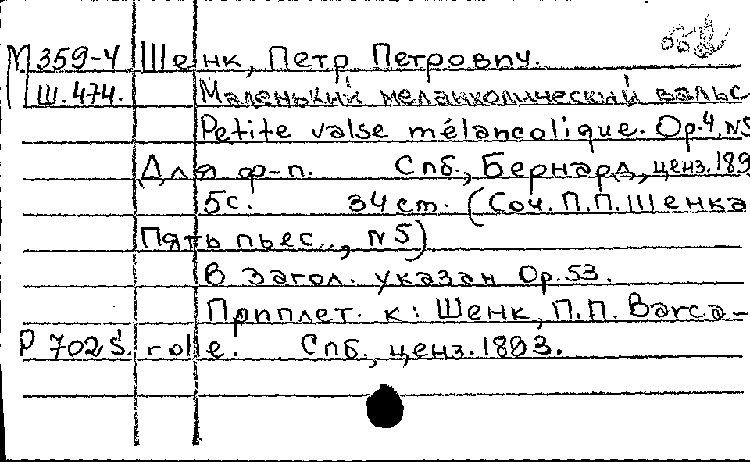 М 359-4 Шенк, Петр Петрович.
Ш.474. Маленький меланхолический вальс
Petite valse mélancolique. Op.4, N5
Для ф-п. Спб., Бернард, ценз.189
5с. 34 cm. (Соч. П.П.Шенка
Пять пьес.., N5)
В загол. указан Op.53.
Приплет. к: Шенк, П.П. Barca-
Р 702 S. rolle. Спб., ценз.1893.